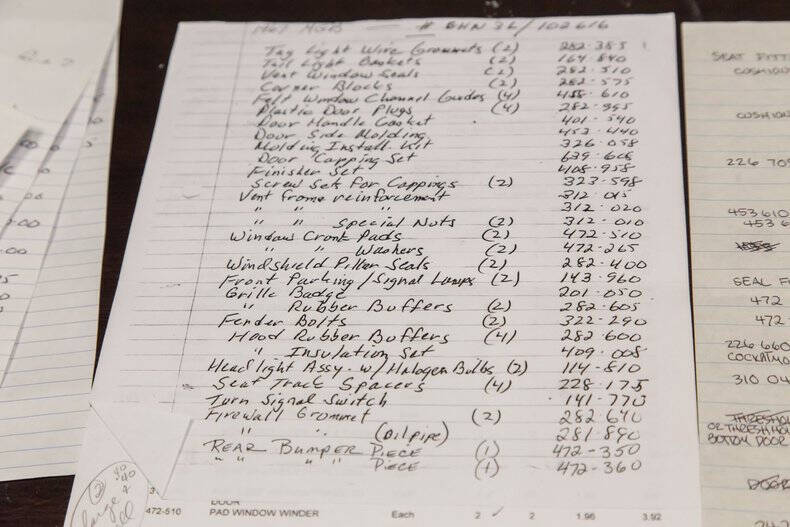 1967 MGB — # GHN 3L/102616
Tag Light Wire Grommets (2) 282-385
Tail Light Gaskets (2) 164-840
Vent Window Seals (2) 282-510
Corner Blocks (2) 282-575
Felt Window Channel Guides (4) 455-610
Plastic Door Plugs (4) 282-965
Door Handle Gasket 401-540
Door Side Molding 453-440
Molding Install Kit 326-058
Door Capping Set 639-608
Finisher Set 408-958
Screw Sets For Cappings (2) 323-598
Vent frame reinforcement 312-015
" " " 312-020
" " Special Nuts (2) 312-010
Window Crank Pads (2) 472-510
" " Washers (2) 472-265
Windshield Piller Seals (2) 282-400
Front Parking/Signal Lamps (2) 143-960
Grille Badge 201-050
" Rubber Buffers (2) 282-605
Fender Bolts (2) 322-290
Hood Rubber Buffers (4) 282-600
" Insulation Set 409-008
Headlight Assy-w/Halogen Bulbs (2) 114-810
Seat Track Spacers (4) 228-175
Turn Signal Switch 141-770
Firewall Grommet (2) 282-640
" " (Oil pipe) 281-890
REAR BUMPER PIECE (1) 472-350
" " " " PIECE (1) 472-360
DOOR
472-510 PAD WINDOW WINDER Each 2 2 1.96 3.92
SEAT FITT
CUSHION
CUSHION
226 70
453 610
453 6
SEAL F
472
472
226 660
310 04
THRESHO
OR THRESHOL
BOTTOM DOOR
DOOR